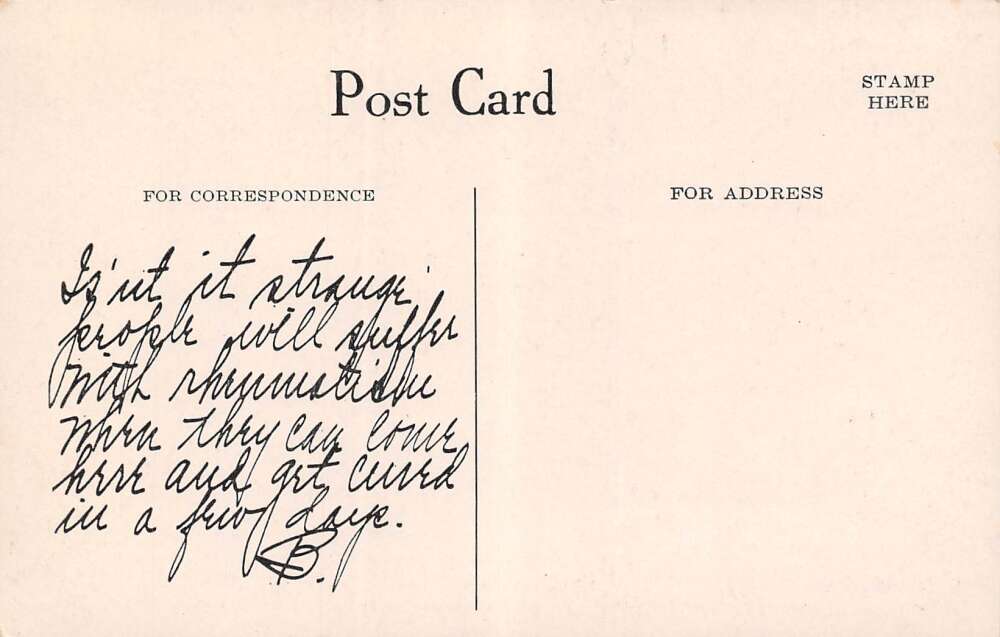 Post Card
STAMP
HERE
FOR CORRESPONDENCE
FOR ADDRESS
Is'nt it strange
people will suffer
with rheumatism
when they can come
here and get cured
in a few days.
B.